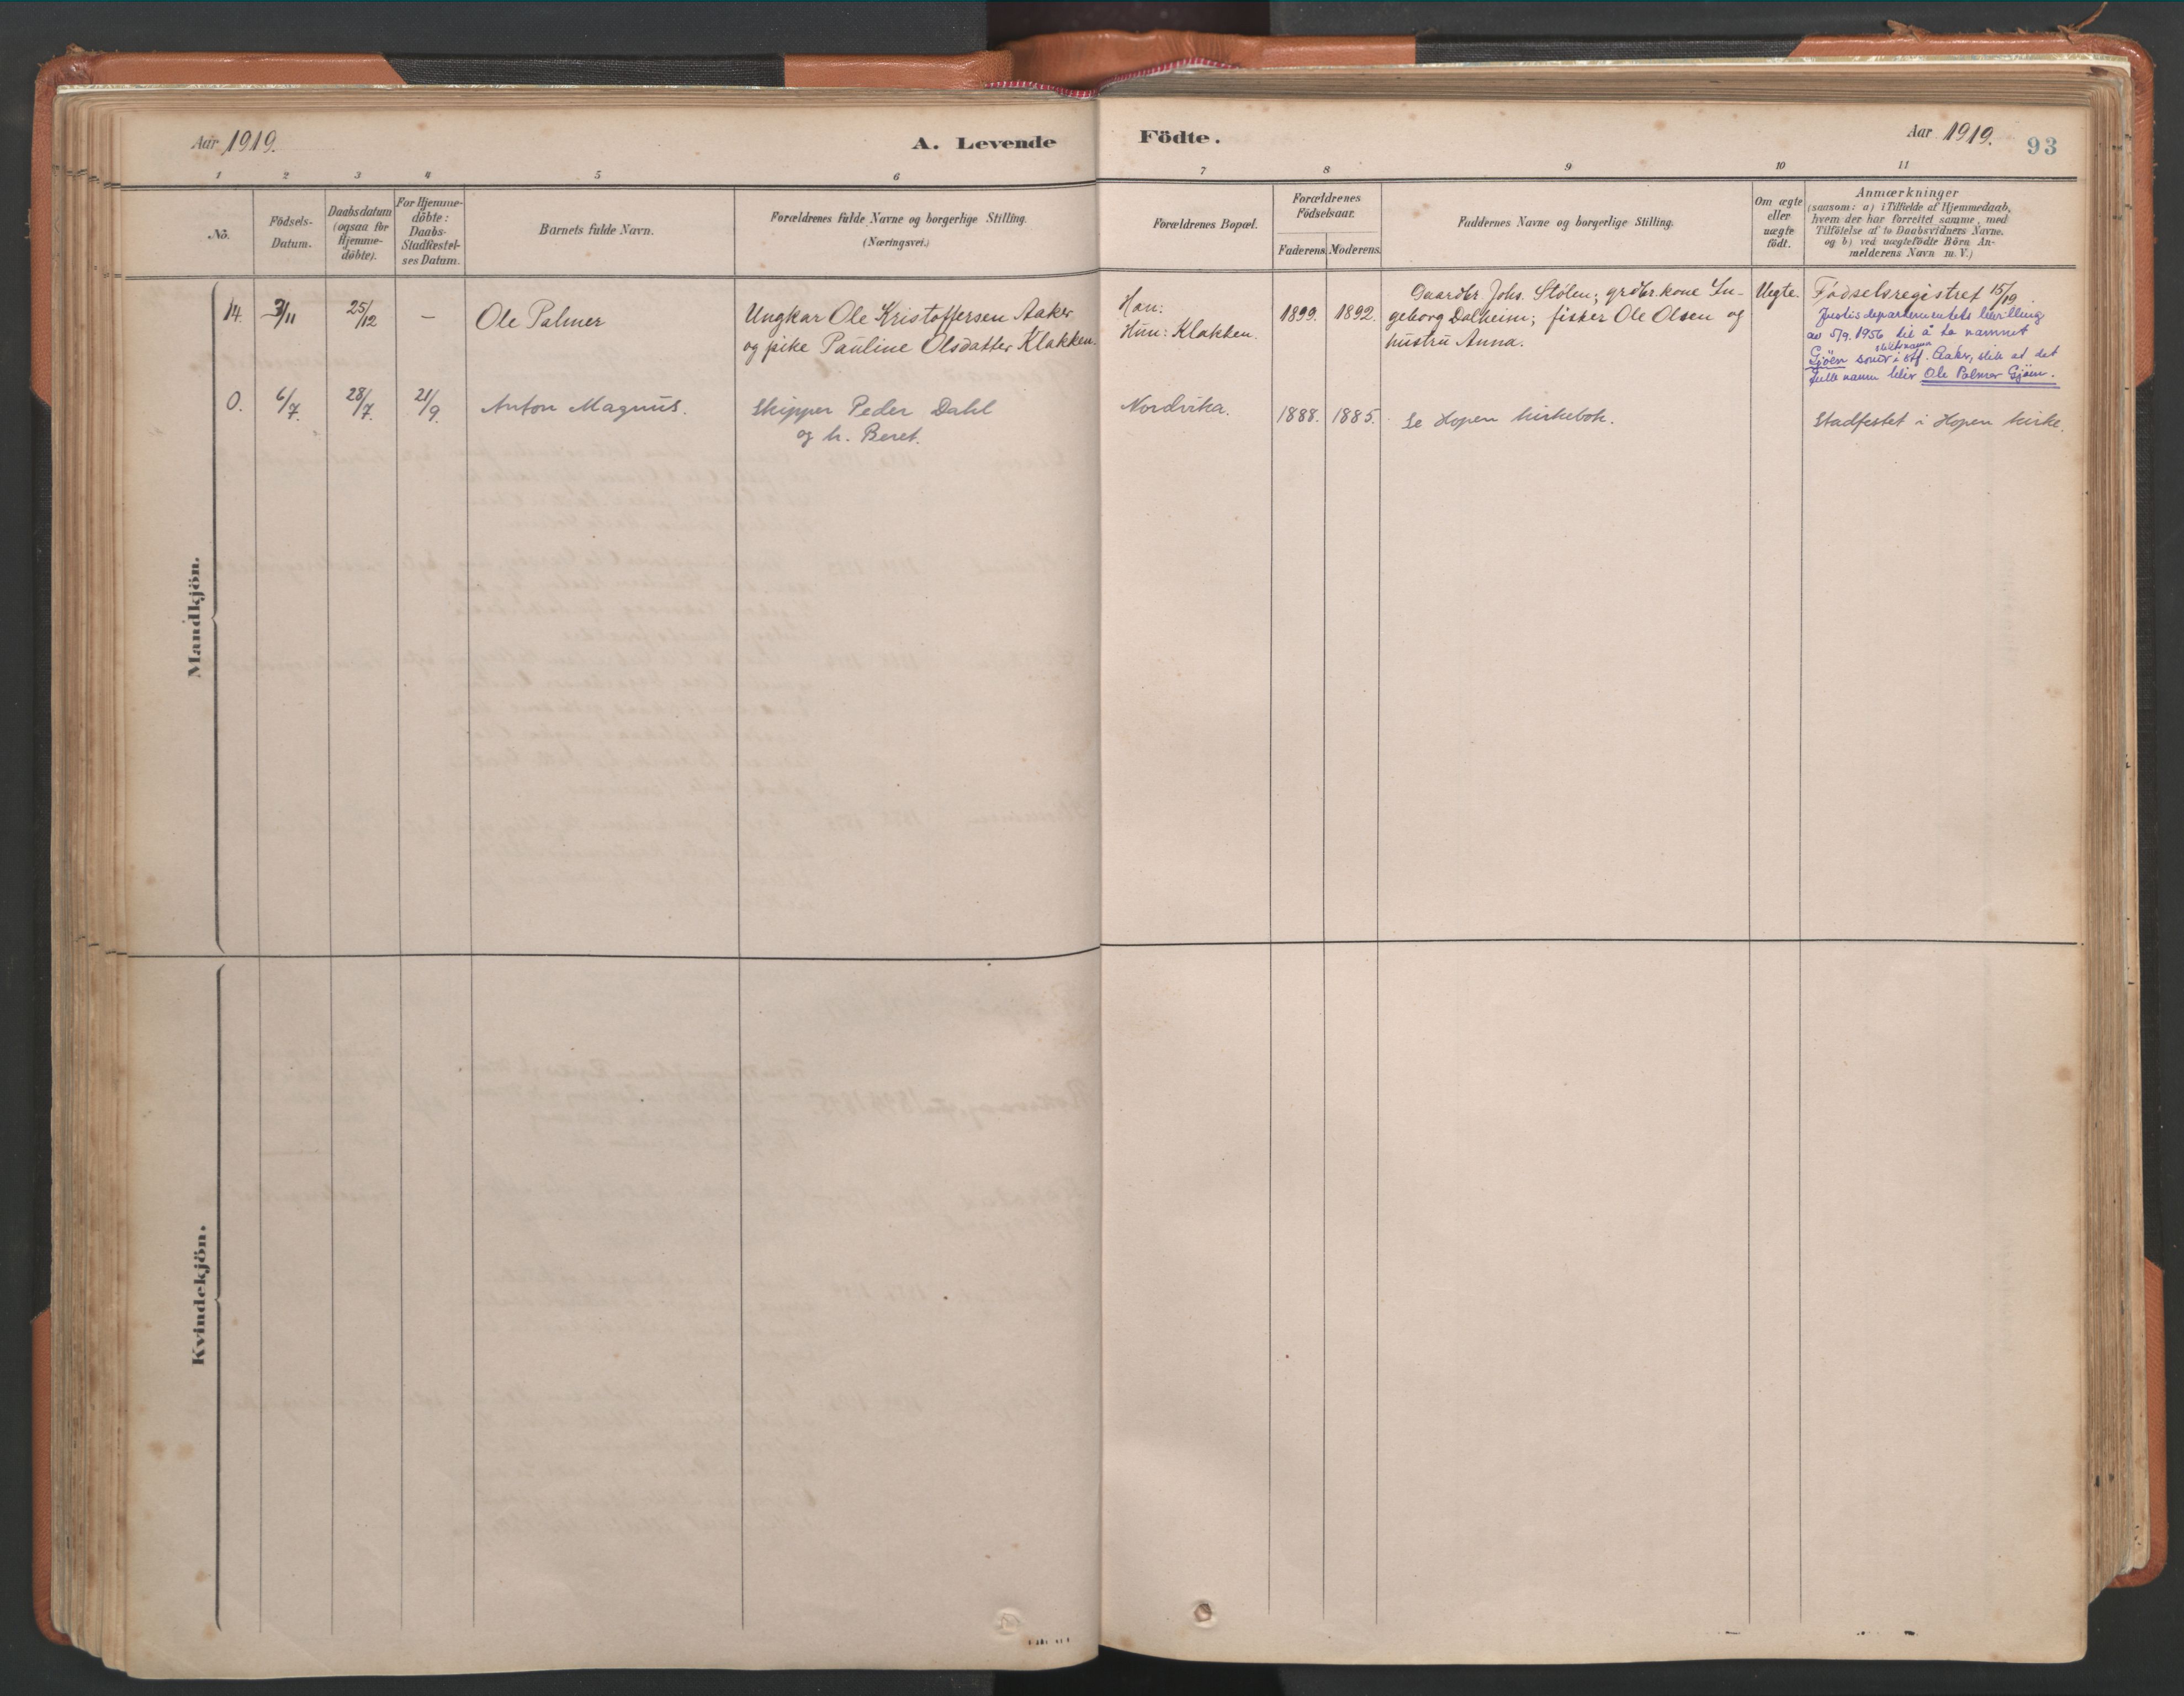 Aar 1919.
A. Levende
Födte.
Aar 1919.
93
1
2
3
4
5
6
7
8
9
10
11
No.
Födsels-
Datum.
Daabsdatum
(ogsaa for
Hjemme-
döbte).
For Hjemme-
döbte:
Daabs-
Stadfæstel-
ses Datum.
Barnets fulde Navn.
Forældrenes fulde Navne og borgerlige Stilling.
(Næringsvei.)
Forældrenes Bopæl.
Forældrenes
Födselsaar.
Faderens.
Moderens.
Faddernes Navne og borgerlige Stilling.
Om ægte
eller
uægte
födt.
Anmærkninger
(saasom: a) i Tilfælde af Hjemmedaab,
hvem der har forrettet samme, med
Tilföielse af to Daabsvidners Navne.
og b) ved uægtefödte Börn An-
melderens Navn m. V.)
Mandkjön.
14.
3/11
25/12
–
Ole Palmer
Ungkar Ole Kristoffersen Aaker
og pike Pauline Olsdatter Klakken.
Han:
Hun: Klakken.
1899.
1892.
Gaardbr. Johs. Stölen; grdbr.kone In-
geborg Dalheim; fisker Ole Olsen og
hustru Anna.
Uegte.
Födselsregistret 15/19.
Justisdepartementets bevilling
av 5/9. 1956 til å ta namnet
Gjöen som slektsnamn i stf. Aaker, slik at det
fulle namn blir Ole Palmer Gjöen.
0.
6/7.
28/7.
21/9.
Anton Magnus.
Skipper Peder Dahl
og h. Beret.
Nordvika.
1888.
1885.
Se Hopen kirkebok.
Stadfestet i Hopen kirke.
Kvindekjön.